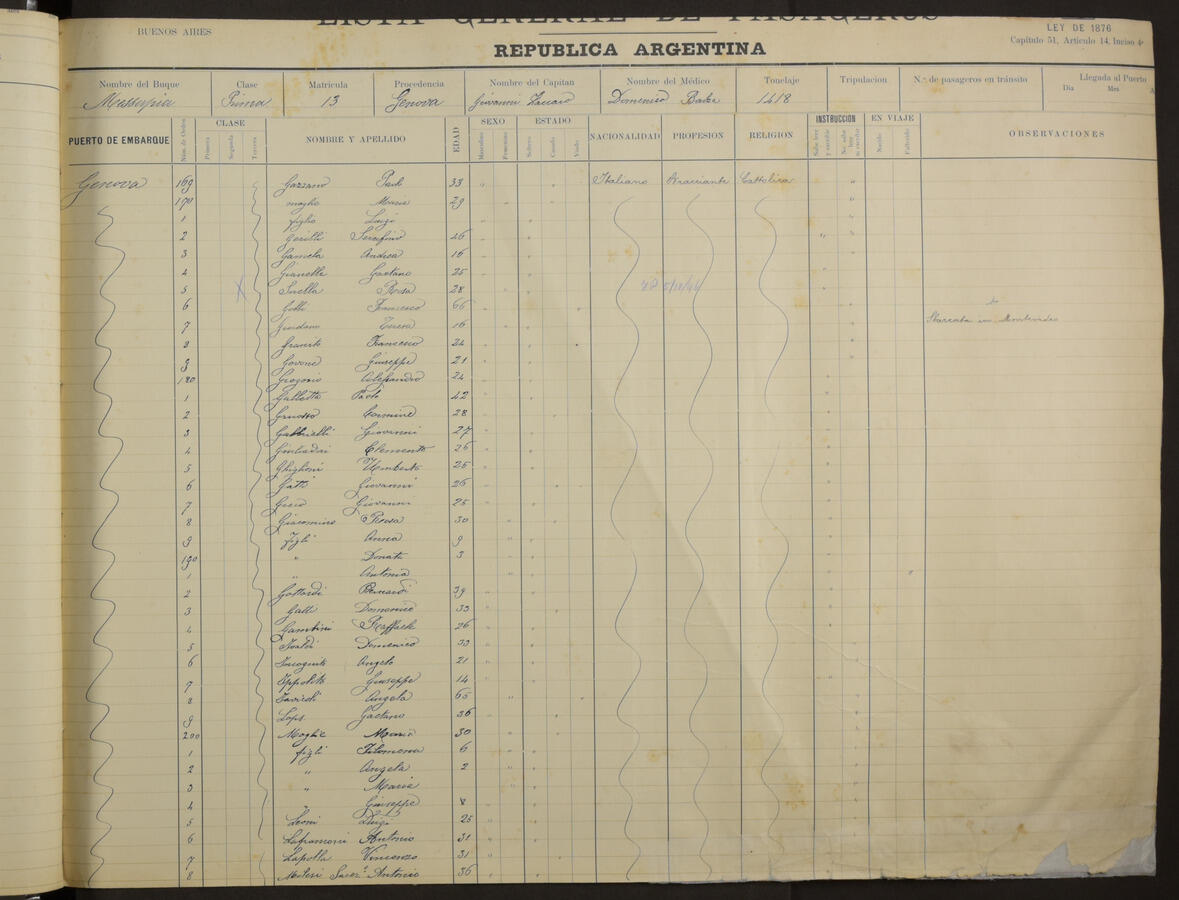 LISTA GENERAL DE PASAGEROS
BUENOS AIRES
LEY DE 1876
REPUBLICA ARGENTINA
Capítulo 51, Artículo 14, Inciso 4
Nombre del Buque Clase Matricula Procedencia Nombre del Capitan Nombre del Médico Tonelaje Tripulacion N.º de pasageros en tránsito Llegada al Puerto
Dia Mes
Prima 13 Genova Giovanni Domenico 1418
PUERTO DE EMBARQUE Núm. de Orden CLASE NOMBRE Y APELLIDO EDAD SEXO ESTADO NACIONALIDAD PROFESION RELIGION INSTRUCCIÓN EN VIAJE OBSERVACIONES
Primera Segunda Tercera Masculino Femenino Soltero Casado Viudo Sabe leer y escribir No sabe leer ni escribir Nacido Fallecido
Genova 169 Gazzano Paolo 33 Italiano Bracciante Cattolica
170 moglie Maria 29
1 figlio Luigi
2 Gerilli Serafino 46
3 Gamela Andrea 16
4 Gianelli Gaetano 25
5 Rosa 28
6 Francesco 66
7 Giordano Teresa 16 Sbarcata in Montevideo
8 Francesco 24
9 Govone Giuseppe 21
180 Gregorio Alessandro 24
1 Galletta Paolo 42
2 Carmine 28
3 Gabbrielli Giovanni 27
4 Clemente 26
5 Ghiglioni Umberto 25
6 Gatti Giovanni 26
7 Giovanni 25
8 Giacomino Rosa 30
9 figli Anna 9
190 " Donato 3
1 " Antonia
2 Gottardi Bernardi 39
3 Galli Domenico 33
4 Gambini Raffaele 26
5 Ivaldi Domenico 33
6 Incognito Angelo 21
7 Ippolito Giuseppe 14
8 Angela 65
9 Lops Gaetano 36
200 Moglie Maria 30
1 figli Filomena 6
2 " Angela 2
3 " Maria
4 " Giuseppe 8
5 Leoni Luigi 25
6 Antonio 31
7 Lapolla Vincenzo 31
8 Antonio 36